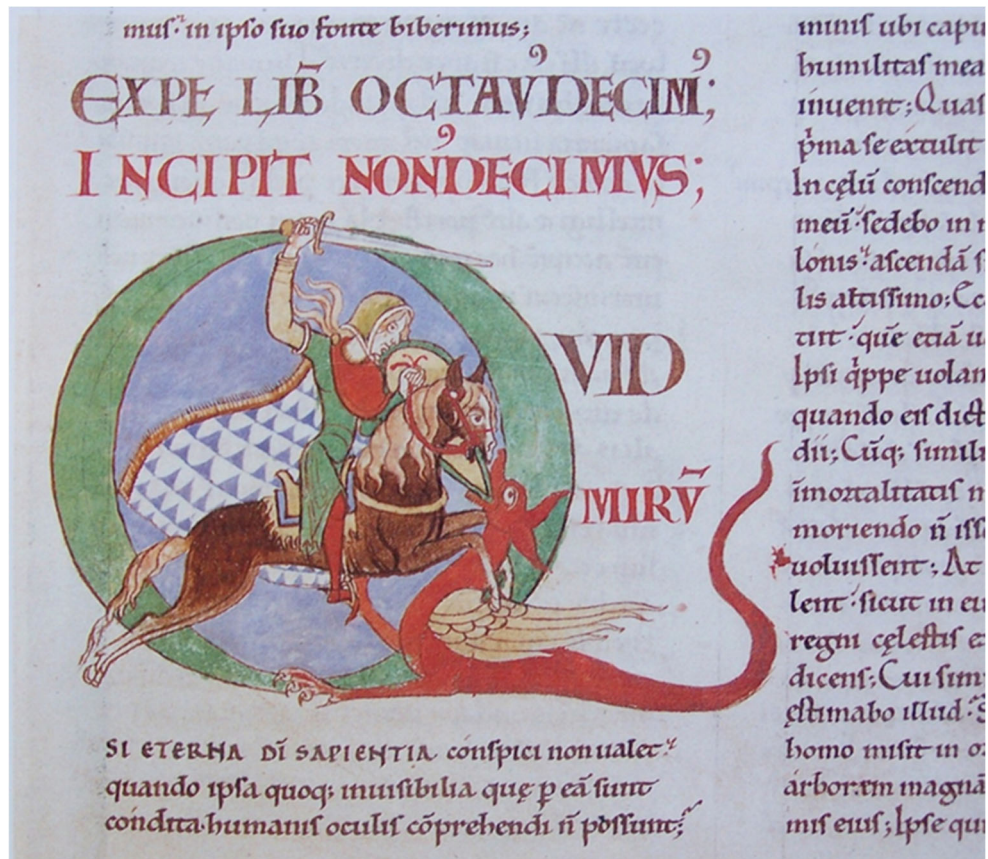 mus· in ipso suo fonte biberimus;
EXPɫ LIB̄ OCTAVꝰDECIMꝰ;
INCIPIT NONꝰDECIMVS;
VID
MIRV̄
SI ETERNA DĪ SAPIENTIA conspici non ualet·
quando ipsa quoq; inuisibilia quę p eā sunt
condita· humanis oculis cōprehendi n̄ possunt;
minis ubi capu
humilitas mea
inuenit; Quas
p̍ma se extulit
In cęlū conscend
meū· sedebo in
lonis· ascendā s
lis altissimo; Ec
tur· quē etiā u
Ipsi q̍ppe uolan
quando eis dict
dii; Cūq; simili
īmortalitatis
moriendo n̄ iss
uoluissent; At
lent· sicut in eu
regni cęlestis e
dicens; Cui sim
ęstimabo illud·
homo misit in o
arborem magnā
mis eius; Ipse qui